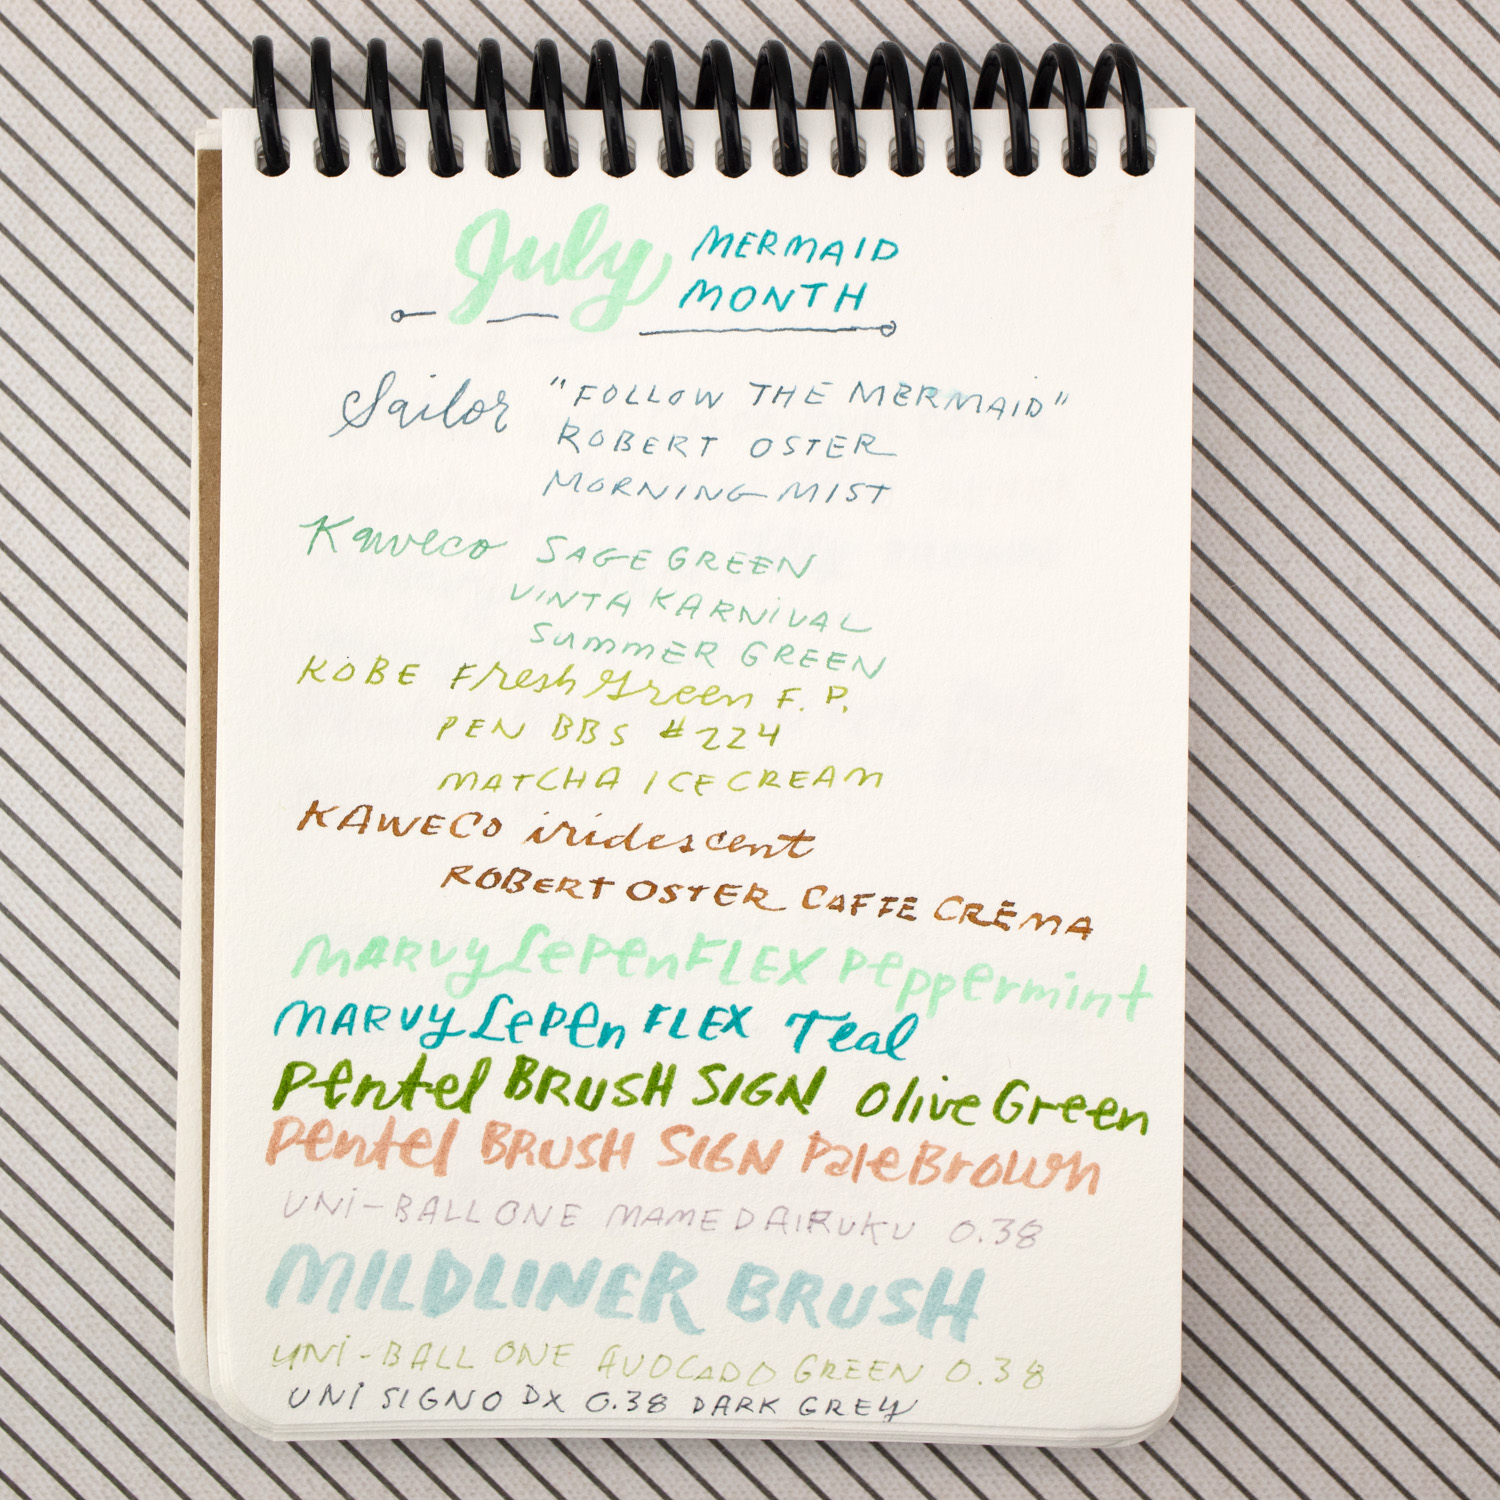 July MERMAID
MONTH
Sailor "FOLLOW THE MERMAID"
ROBERT OSTER
MORNING MIST
Kaweco SAGE GREEN
VINTA KARNIVAL
SUMMER GREEN
KOBE Fresh Green F. P.
PEN BBS #224
MATCHA ICE CREAM
KAWECO iridescent
ROBERT OSTER CAFFE CREMA
MARVY LePen FLEX Peppermint
MARVY LePen FLEX Teal
Pentel BRUSH SIGN Olive Green
Pentel BRUSH SIGN Pale Brown
UNI-BALL ONE MAMEDAIRUKU 0.38
MILDLINER BRUSH
UNI-BALL ONE AVOCADO GREEN 0.38
UNI SIGNO DX 0.38 DARK GREY